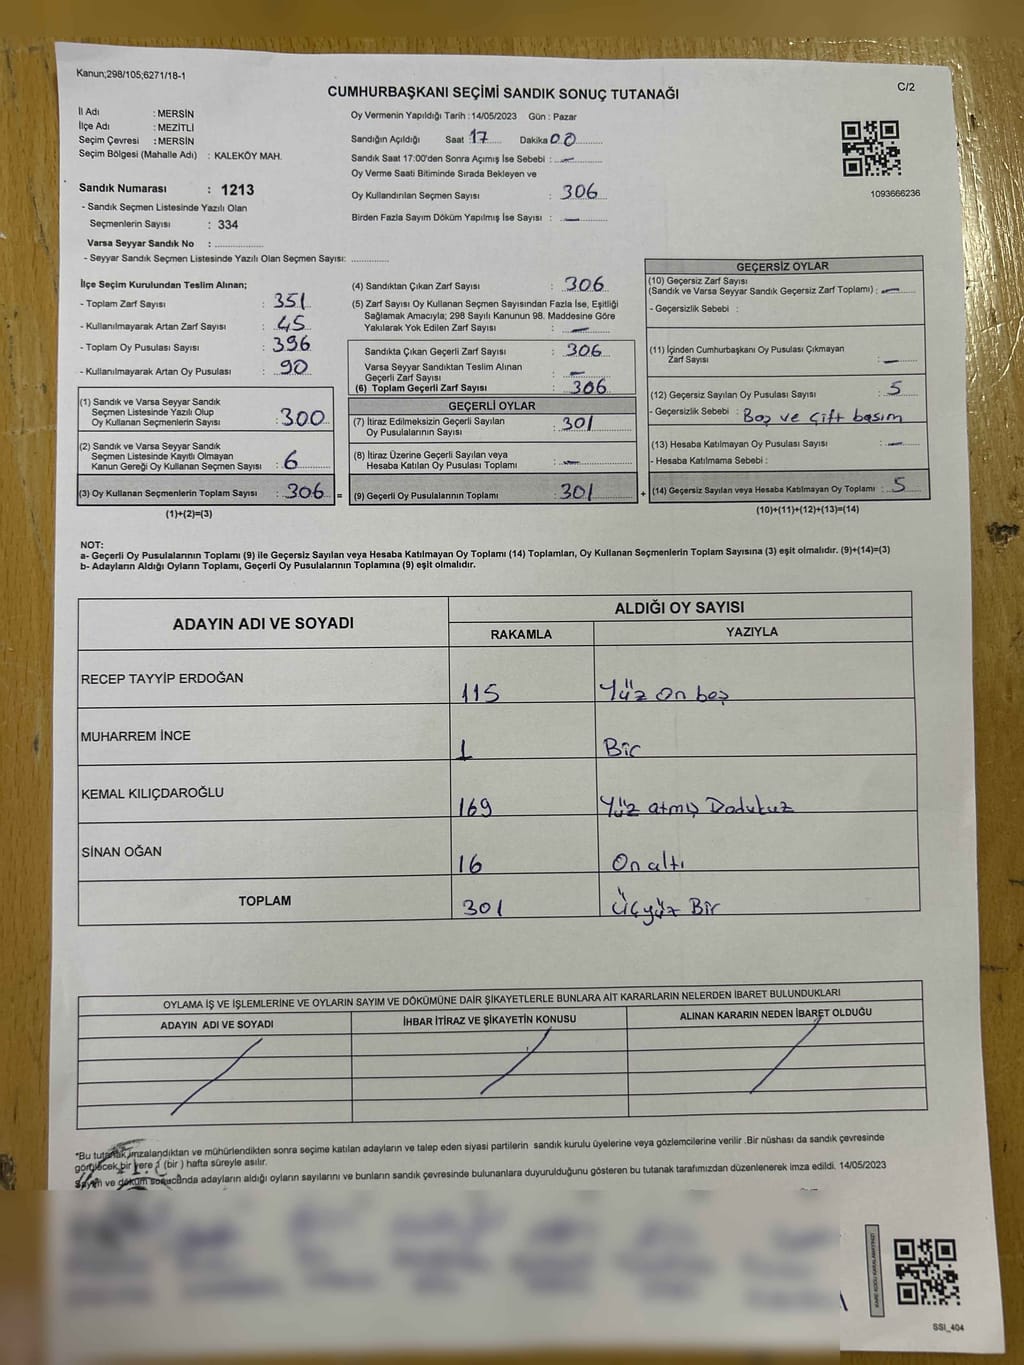 Kanun;298/105;6271/18-1
C/2
CUMHURBAŞKANI SEÇİMİ SANDIK SONUÇ TUTANAĞI
İl Adı : MERSİN
İlçe Adı : MEZİTLİ
Seçim Çevresi : MERSİN
Seçim Bölgesi (Mahalle Adı) : KALEKÖY MAH.
Sandık Numarası : 1213
- Sandık Seçmen Listesinde Yazılı Olan
Seçmenlerin Sayısı : 334
Varsa Seyyar Sandık No : ................
- Seyyar Sandık Seçmen Listesinde Yazılı Olan Seçmen Sayısı: ............
Oy Vermenin Yapıldığı Tarih : 14/05/2023 Gün : Pazar
Sandığın Açıldığı Saat 17 Dakika 00
Sandık Saat 17:00'den Sonra Açımış İse Sebebi : —
Oy Verme Saati Bitiminde Sırada Bekleyen ve
Oy Kullandırılan Seçmen Sayısı : 306
Birden Fazla Sayım Döküm Yapılmış İse Sayısı : —
1093666236
İlçe Seçim Kurulundan Teslim Alınan;
- Toplam Zarf Sayısı : 351
- Kullanılmayarak Artan Zarf Sayısı : 45
- Toplam Oy Pusulası Sayısı : 396
- Kullanılmayarak Artan Oy Pusulası : 90
(1) Sandık ve Varsa Seyyar Sandık
Seçmen Listesinde Yazılı Olup
Oy Kullanan Seçmenlerin Sayısı : 300
(2) Sandık ve Varsa Seyyar Sandık
Seçmen Listesinde Kayıtlı Olmayan
Kanun Gereği Oy Kullanan Seçmen Sayısı : 6
(3) Oy Kullanan Seçmenlerin Toplam Sayısı : 306 =
(1)+(2)=(3)
(4) Sandıktan Çıkan Zarf Sayısı : 306
(5) Zarf Sayısı Oy Kullanan Seçmen Sayısından Fazla İse, Eşitliği
Sağlamak Amacıyla; 298 Sayılı Kanunun 98. Maddesine Göre
Yakılarak Yok Edilen Zarf Sayısı : —
Sandıkta Çıkan Geçerli Zarf Sayısı : 306
Varsa Seyyar Sandıktan Teslim Alınan
Geçerli Zarf Sayısı : —
(6) Toplam Geçerli Zarf Sayısı : 306
GEÇERLİ OYLAR
(7) İtiraz Edilmeksizin Geçerli Sayılan
Oy Pusulalarının Sayısı : 301
(8) İtiraz Üzerine Geçerli Sayılan veya
Hesaba Katılan Oy Pusulası Toplamı : —
(9) Geçerli Oy Pusulalarının Toplamı : 301 +
GEÇERSİZ OYLAR
(10) Geçersiz Zarf Sayısı
(Sandık ve Varsa Seyyar Sandık Geçersiz Zarf Toplamı) : —
- Geçersizlik Sebebi :
(11) İçinden Cumhurbaşkanı Oy Pusulası Çıkmayan
Zarf Sayısı : —
(12) Geçersiz Sayılan Oy Pusulası Sayısı : 5
- Geçersizlik Sebebi : Boş ve Çift basım
(13) Hesaba Katılmayan Oy Pusulası Sayısı : —
- Hesaba Katılmama Sebebi :
(14) Geçersiz Sayılan veya Hesaba Katılmayan Oy Toplamı : 5
(10)+(11)+(12)+(13)=(14)
NOT:
a- Geçerli Oy Pusulalarının Toplamı (9) ile Geçersiz Sayılan veya Hesaba Katılmayan Oy Toplamı (14) Toplamları, Oy Kullanan Seçmenlerin Toplam Sayısına (3) eşit olmalıdır. (9)+(14)=(3)
b- Adayların Aldığı Oyların Toplamı, Geçerli Oy Pusulalarının Toplamına (9) eşit olmalıdır.
ADAYIN ADI VE SOYADI
ALDIĞI OY SAYISI
RAKAMLA YAZIYLA
RECEP TAYYİP ERDOĞAN 115 Yüz On beş
MUHARREM İNCE 1 Bir
KEMAL KILIÇDAROĞLU 169 Yüz atmış Dodukuz
SİNAN OĞAN 16 On altı
TOPLAM 301 Üçyüz Bir
OYLAMA İŞ VE İŞLEMLERİNE VE OYLARIN SAYIM VE DÖKÜMÜNE DAİR ŞİKAYETLERLE BUNLARA AİT KARARLARIN NELERDEN İBARET BULUNDUKLARI
ADAYIN ADI VE SOYADI İHBAR İTİRAZ VE ŞİKAYETİN KONUSU ALINAN KARARIN NEDEN İBARET OLDUĞU
*Bu tutanak imzalandıktan ve mühürlendikten sonra seçime katılan adayların ve talep eden siyasi partilerin sandık kurulu üyelerine veya gözlemcilerine verilir .Bir nüshası da sandık çevresinde
görülecek bir yere 1 (bir ) hafta süreyle asılır.
Sayım ve döküm sonucunda adayların aldığı oyların sayılarını ve bunların sandık çevresinde bulunanlara duyurulduğunu gösteren bu tutanak tarafımızdan düzenlenerek imza edildi. 14/05/2023
SSİ_404